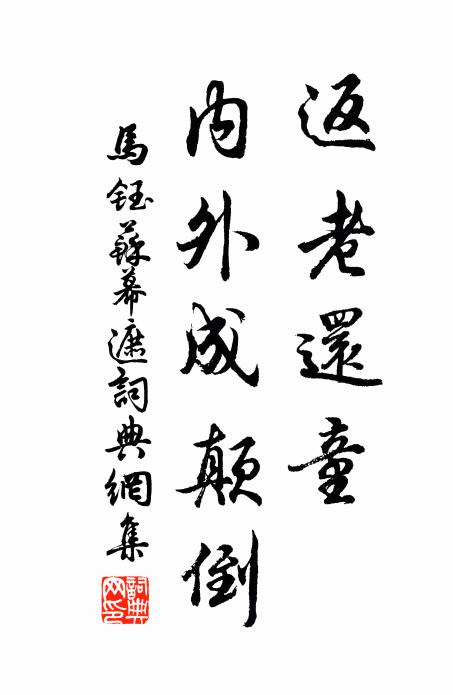 返老還童
内外成顛倒
馬鈺蘇幕遮詞典網集
詞典网印